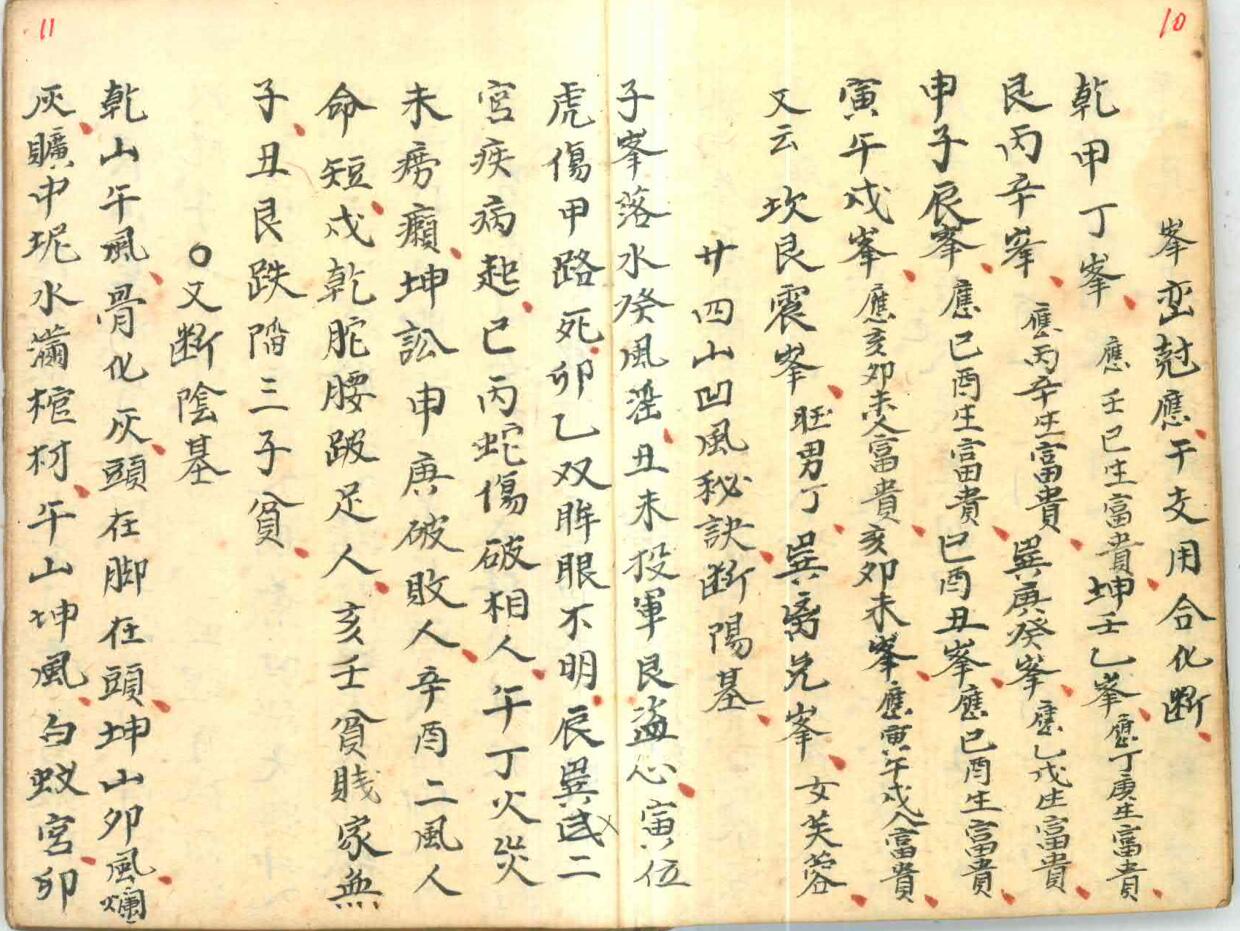 10
峯峦尅應干支用合化斷
乾甲丁峯應壬巳生富貴坤壬乙峯應丁庚生富貴
艮丙辛峯應丙辛生富貴巽庚癸峯應乙戊生富貴
申子辰峯應巳酉生富貴巳酉丑峯應巳酉生富貴
寅午戌峯應亥卯未人富貴亥卯未峯應寅午戌人富貴
又云坎艮震峯旺男丁巽离兌峯女芙蓉
廿四山凹風秘訣斷陽基
子峯落水癸風淫丑未投軍艮盗心寅位
虎傷甲路死卯乙双眸眼不明辰巽二
宮疾病起巳丙蛇傷破相人午丁火災
未痨癩坤訟申庚破敗人辛酉二風人
命短戌乾駝腰跛足人亥壬貧賤家無
子丑艮跌蹈三子貧
○又斷陰基
乾山午風骨化灰頭在脚在頭坤山卯風爛
灰壙中坭水滿棺材午山坤風白蚁宮卯
11